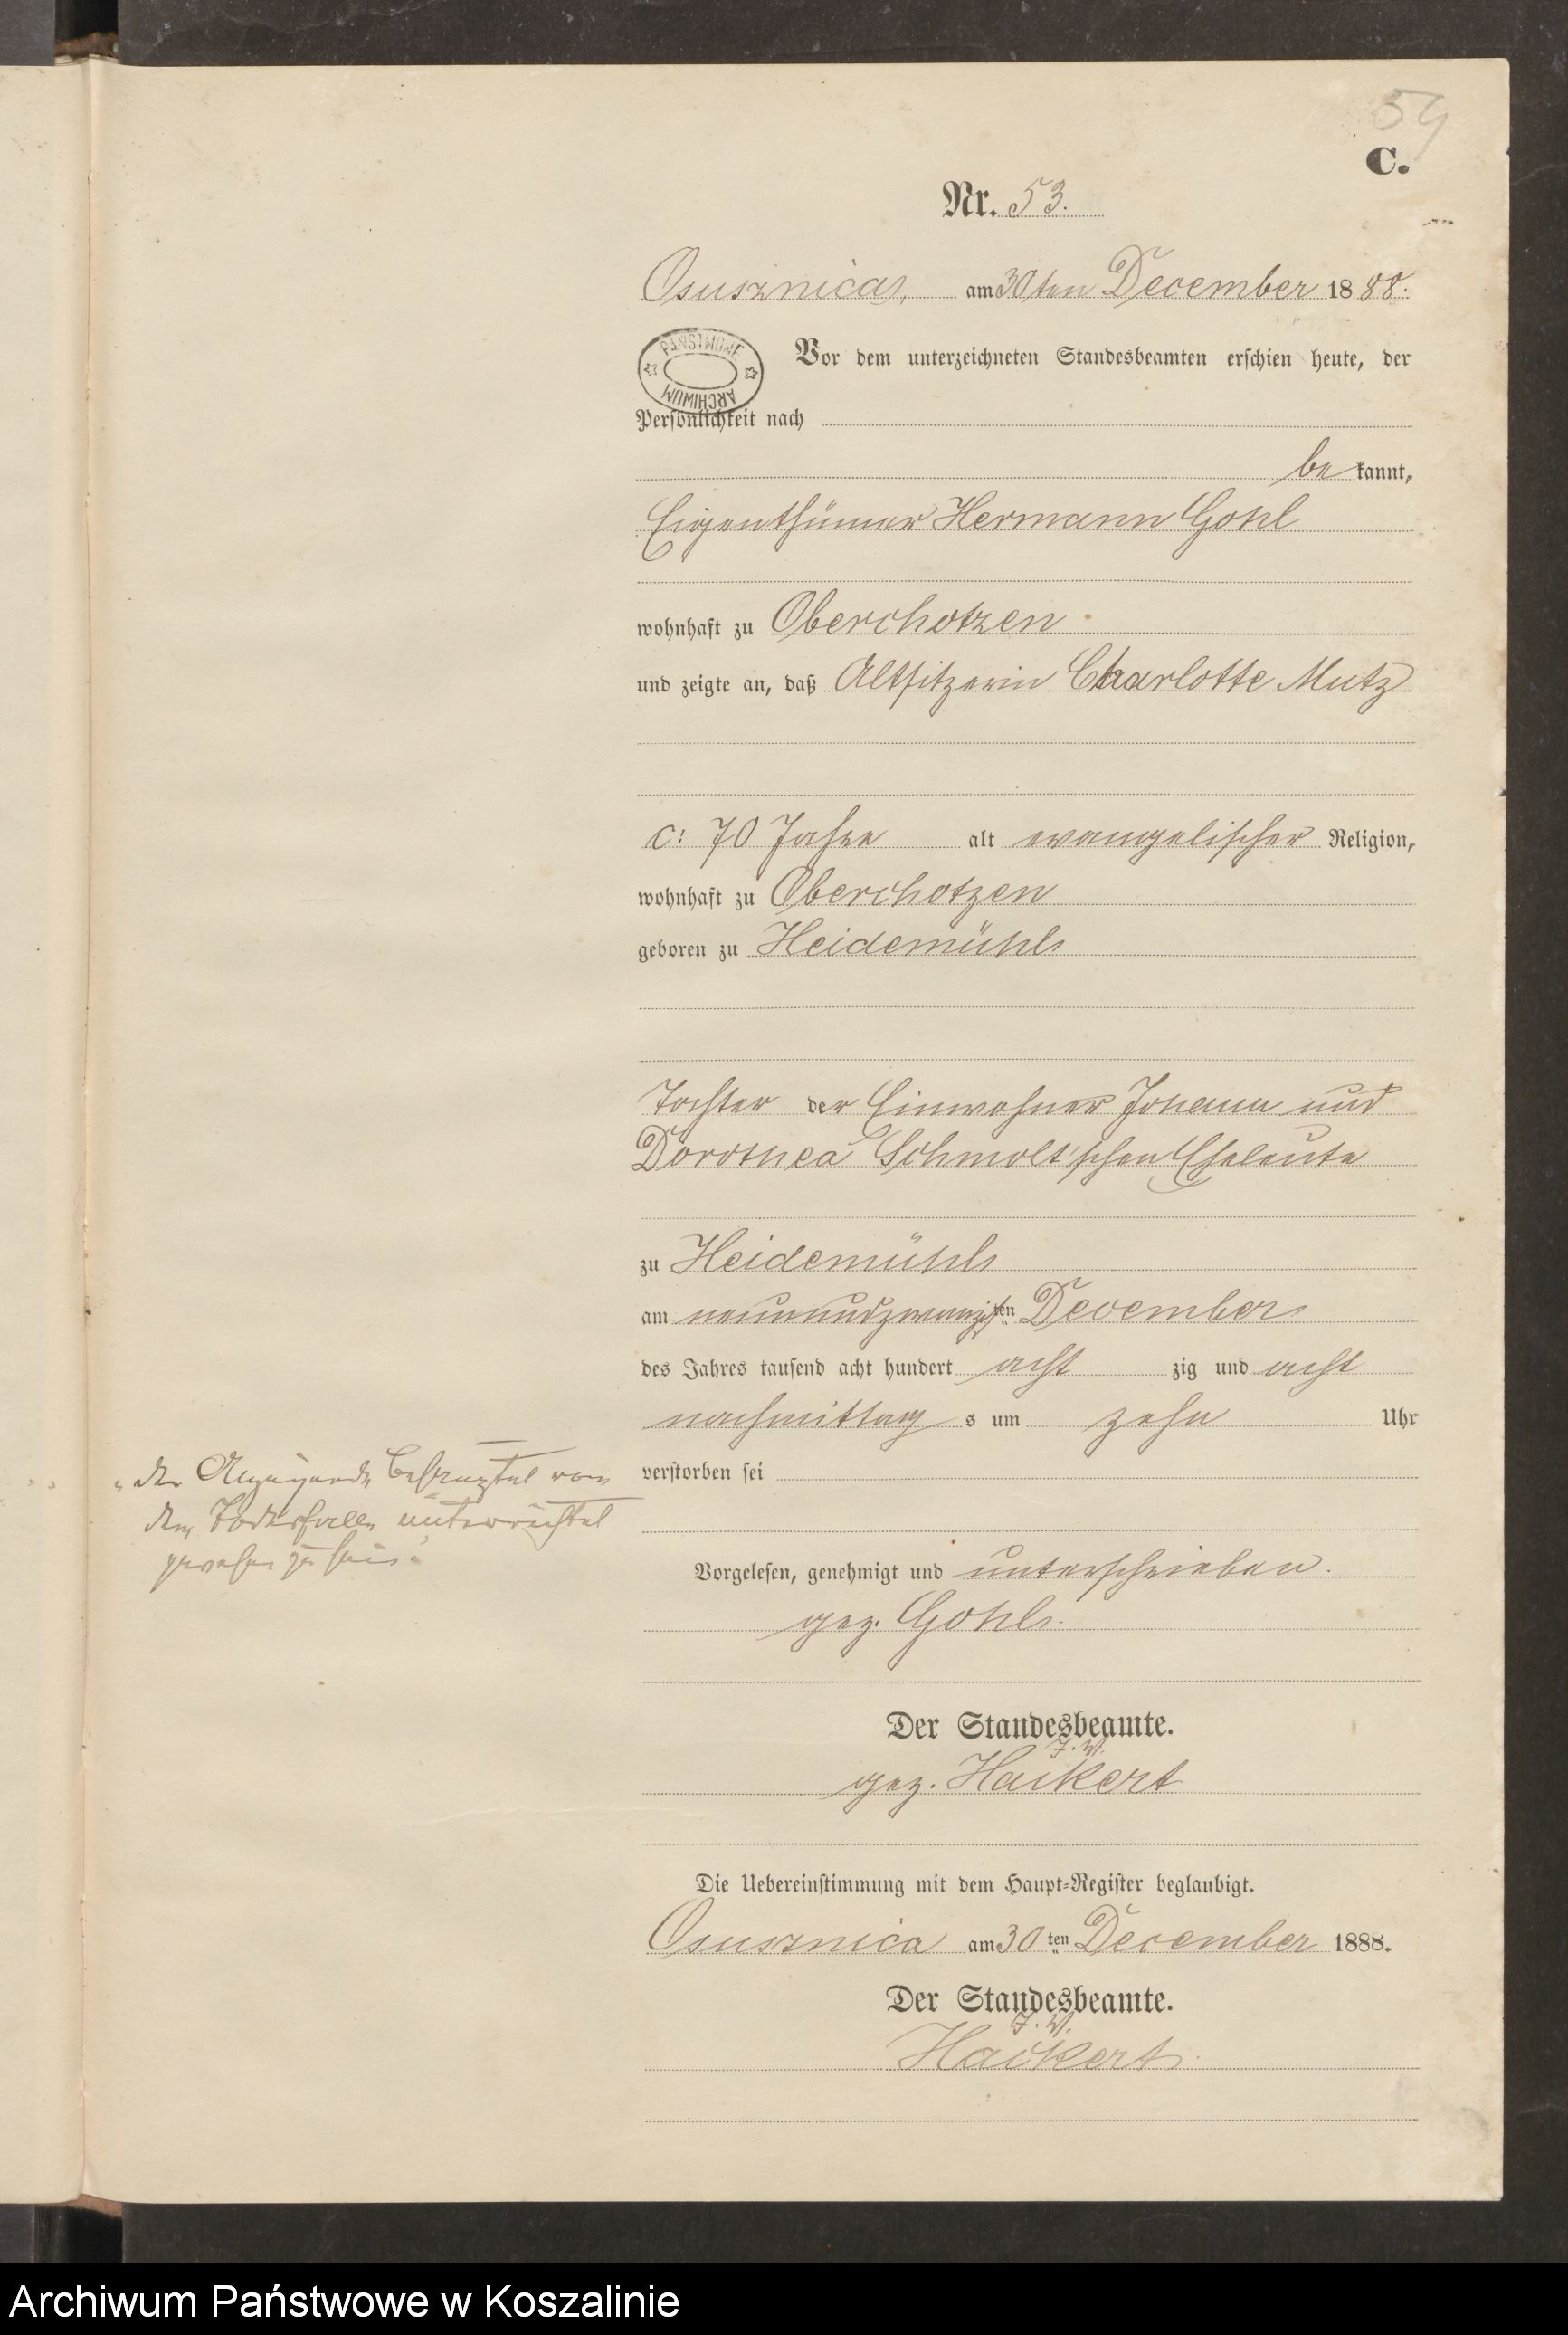 54
C.
Nr. 53.
Osusznica, am 30ten December 1888.
PAŃSTWOWE
ARCHIWUM
Vor dem unterzeichneten Standesbeamten erschien heute, der
Persönlichkeit nach
be kannt,
Eigenthümer Hermann Gohl
wohnhaft zu Oberchotzen
und zeigte an, daß Altsitzerin Charlotte Mutz
c: 70 Jahre alt evangelischer Religion,
wohnhaft zu Oberchotzen
geboren zu Heidemühl
Tochter der Einwohner Johann und
Dorothea Schmolt'schen Eheleute
zu Heidemühl
am neunundzwanzigsten December
des Jahres tausend acht hundert acht zig und acht
nachmittag s um zehn Uhr
verstorben sei
"der Anzeigende von
dem Todesfalle unterrichtet
gewesen zu sein."
Vorgelesen, genehmigt und unterschrieben.
gez. Gohl.
Der Standesbeamte.
gez. Haikert
Die Uebereinstimmung mit dem Haupt-Register beglaubigt.
Osusznica am 30ten December 1888.
Der Standesbeamte.
Haikert.
Archiwum Państwowe w Koszalinie